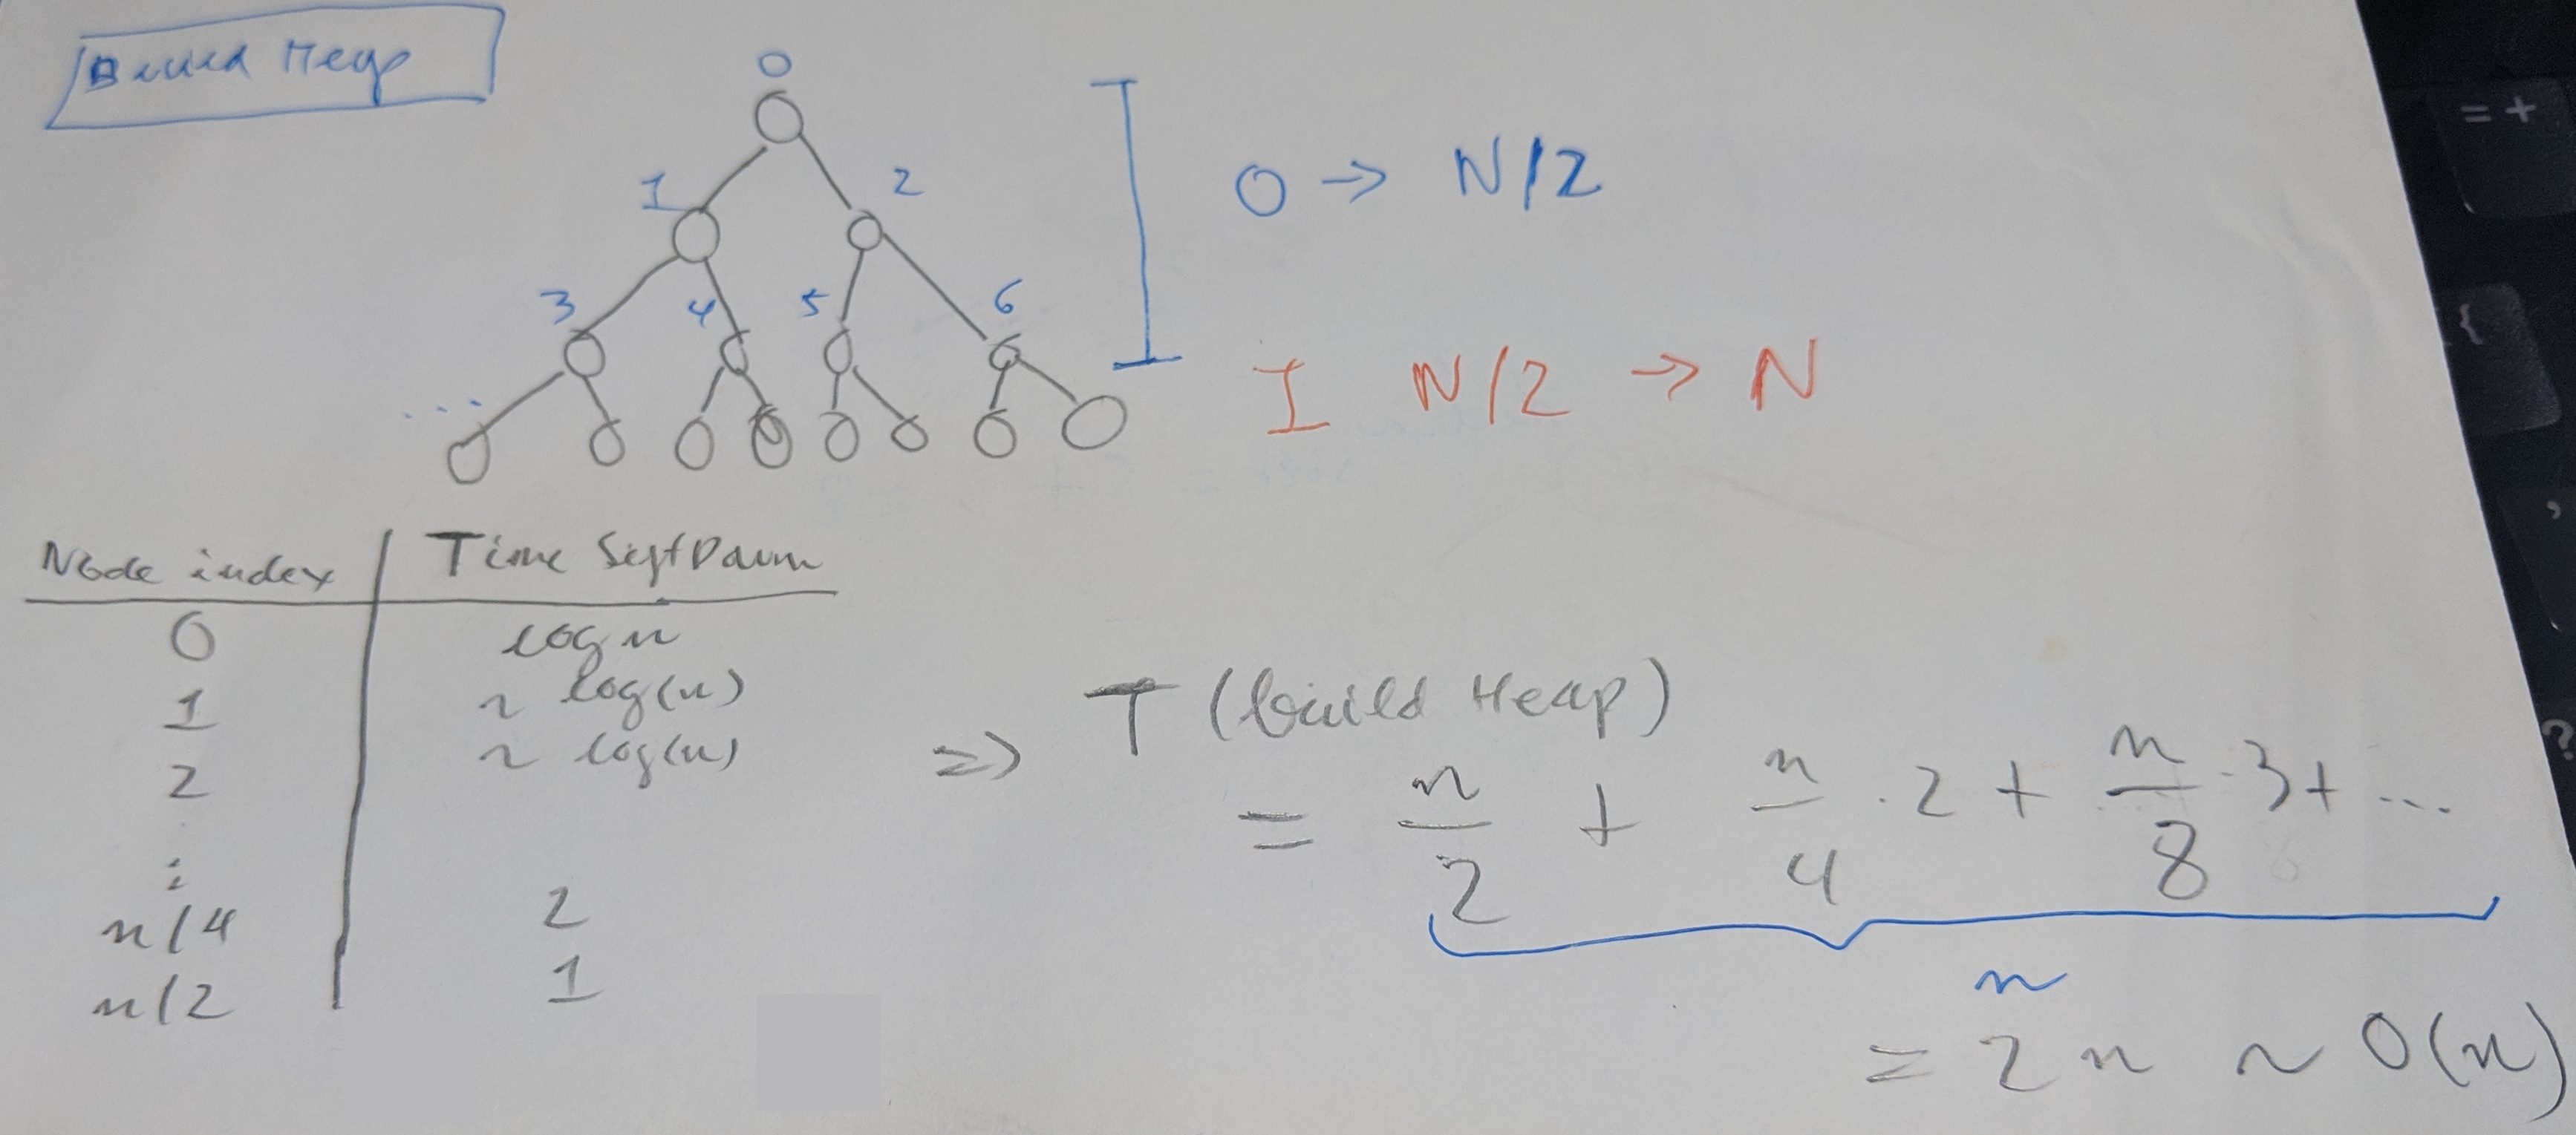 Build Heap
0
1 2
3 4 5 6
...
0 → N/2
I N/2 → N
Node index | Time SiftDown
0 | log n
1 | ~ log(n)
2 | ~ log(n)
:
n/4 | 2
n/2 | 1
=> T (build Heap)
= n/2 + n/4 . 2 + n/8 . 3 + ...
n
= 2n ~ O(n)